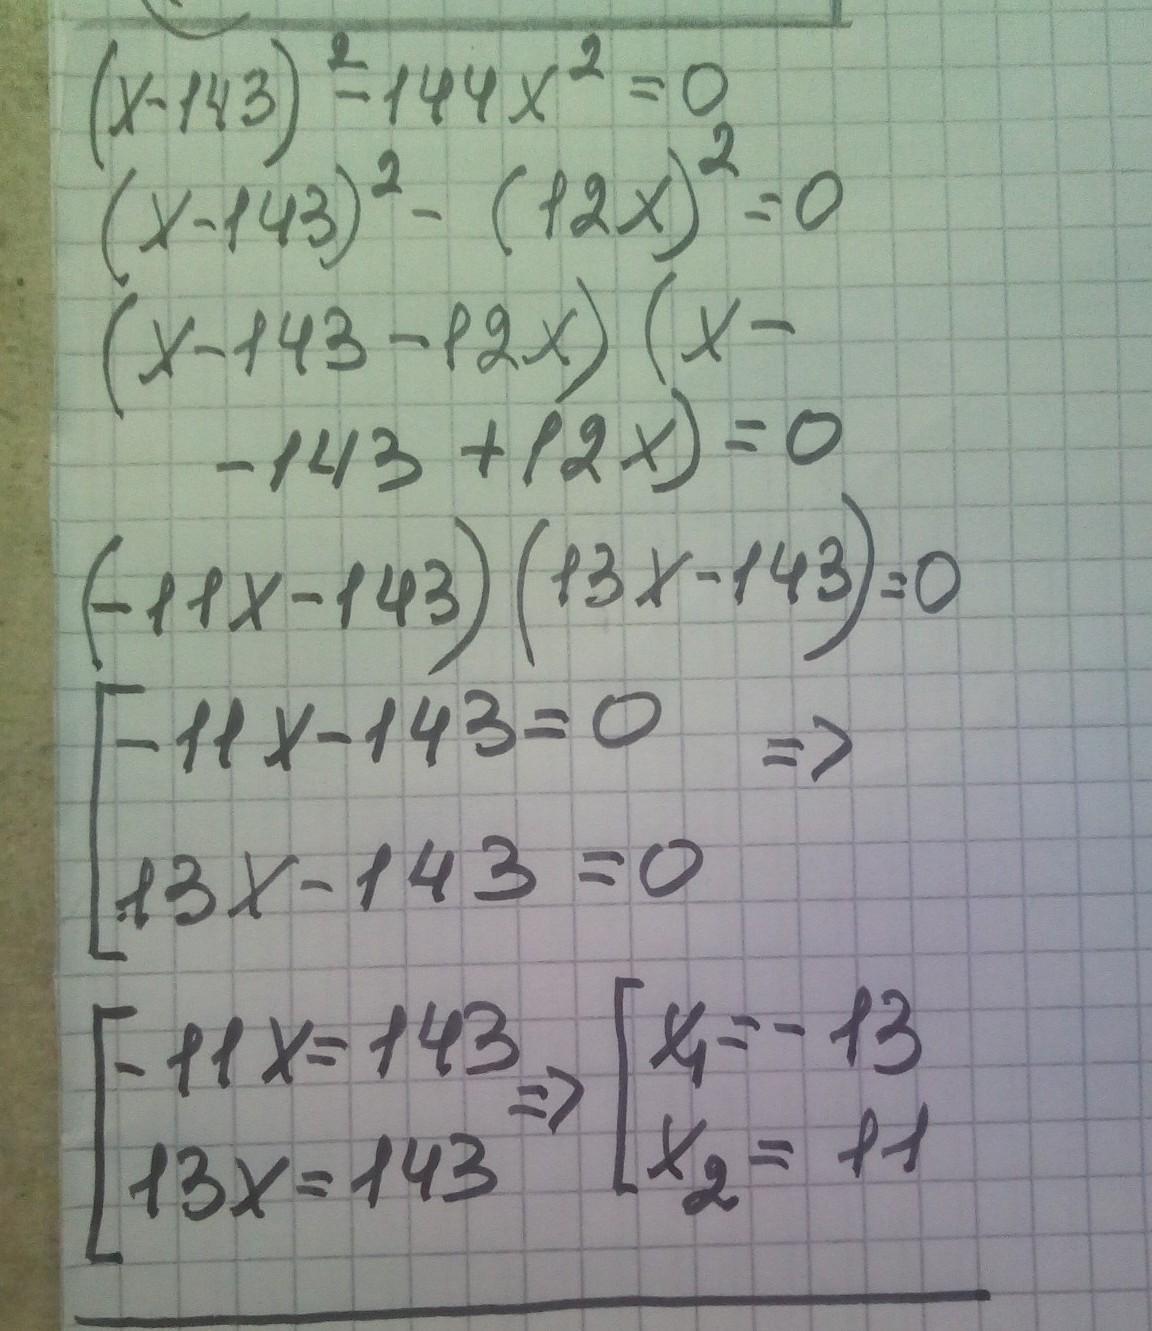 (x-143)² -144x² = 0
(x-143)² - (12x)² = 0
(x-143-12x)(x-
-143+12x) = 0
(-11x-143)(13x-143)=0
[-11x-143=0 =>
13x-143=0
[-11x=143 => [x₁=-13
13x=143 x₂=11